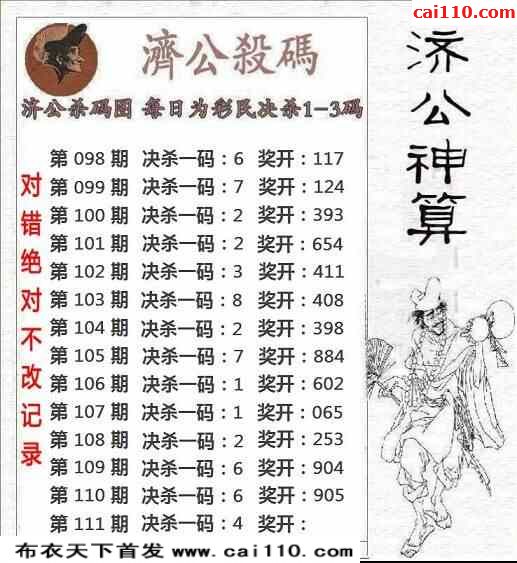 cai110.com
濟公殺碼
济公杀码图 每日为彩民决杀1-3码
济公神算
对错绝对不改记录
第 098 期 决杀一码：6 奖开：117
第 099 期 决杀一码：7 奖开：124
第 100 期 决杀一码：2 奖开：393
第 101 期 决杀一码：2 奖开：654
第 102 期 决杀一码：3 奖开：411
第 103 期 决杀一码：8 奖开：408
第 104 期 决杀一码：2 奖开：398
第 105 期 决杀一码：7 奖开：884
第 106 期 决杀一码：1 奖开：602
第 107 期 决杀一码：1 奖开：065
第 108 期 决杀一码：2 奖开：253
第 109 期 决杀一码：6 奖开：904
第 110 期 决杀一码：6 奖开：905
第 111 期 决杀一码：4 奖开：
布衣天下首发 www.cai110.com